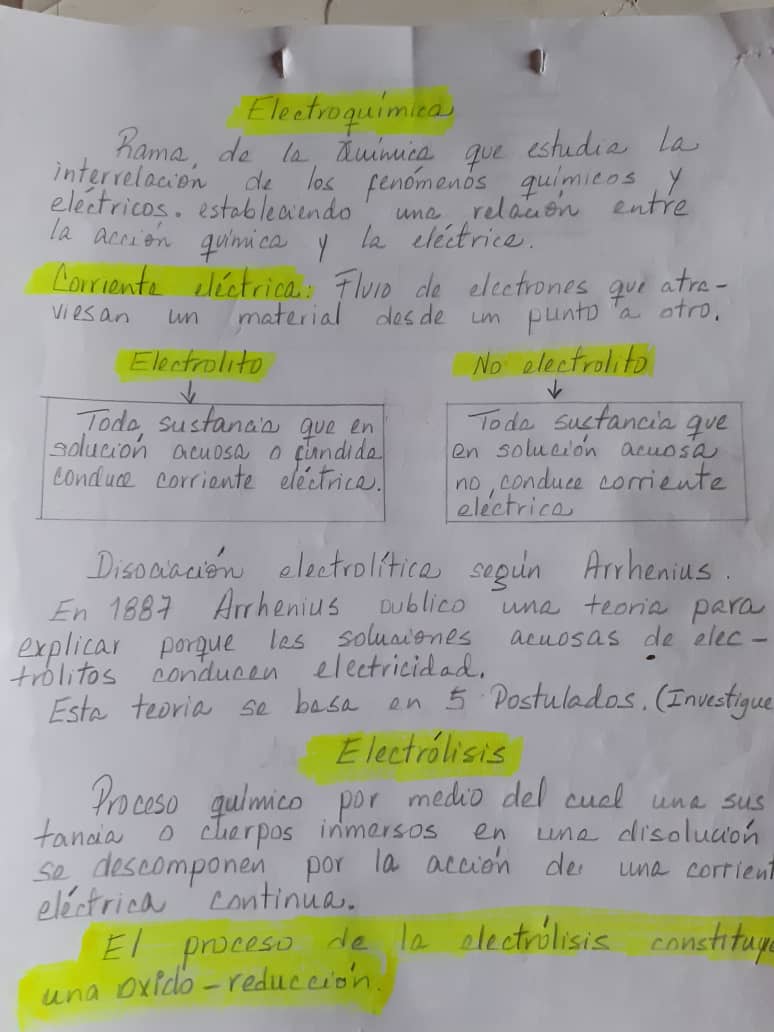 Electroquímica
Rama de la Química que estudia la
interrelación de los fenómenos químicos y
eléctricos. estableciendo una relación entre
la acción química y la eléctrica.
Corriente eléctrica: Flujo de electrones que atra-
viesan un material desde un punto a otro.
Electrolito
Toda sustancia que en
solución acuosa o fundida
conduce corriente eléctrica.
No electrolito
Toda sustancia que
en solución acuosa
no conduce corriente
eléctrica
Disociación electrolítica según Arrhenius.
En 1887 Arrhenius publico una teoria para
explicar porque las soluciones acuosas de elec-
trólitos conducen electricidad.
Esta teoria se basa en 5 Postulados. (Investigue
Electrólisis
Proceso químico por medio del cual una sus
tancia o cuerpos inmersos en una disolución
se descomponen por la acción de una corrient
eléctrica continua.
El proceso de la electrólisis constituye
una oxido-reducción.